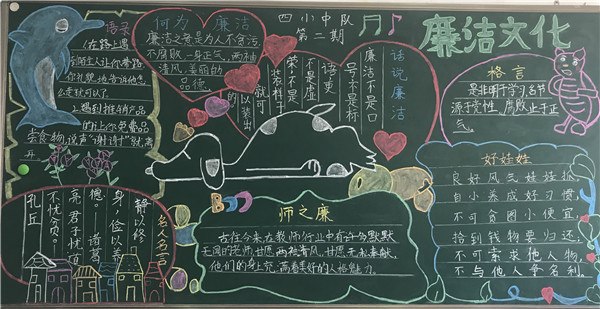 廉洁文化
四小中队
第二期
语录
(在路上遇
到陌生人让你带路,
你礼貌地告诉他怎
么走就可以了.
2.遇到推销产品
的让你免费品
尝食物,说声"谢谢"就离
开.
何为 廉洁
廉洁之贤是为人不贪污,
不腐败,一身正气,两袖
清风,美丽的
品德.
话说廉洁
廉洁不是口
号不是标
语更
不是虚
荣,不是
装样子
就可
以装出
的
格言
是非明于学习名节
源于党性,腐败止于正
气.
好娃娃
良好风气娃娃抓,
自小养成好习惯,
不可贪图小便宜,
拾到钱物要归还,
不可索求他人物,
不与他人争名利.
师之廉
古往今来在教师行业中有许多默默
无闻的老师,甘愿两袖清风,甘愿无未奉献,
他们的身上充满着美好的人格魅力.
名人名言
静以修
身,俭以养
德——诸葛
亮 君子忧道
不忧贫。——
孔丘